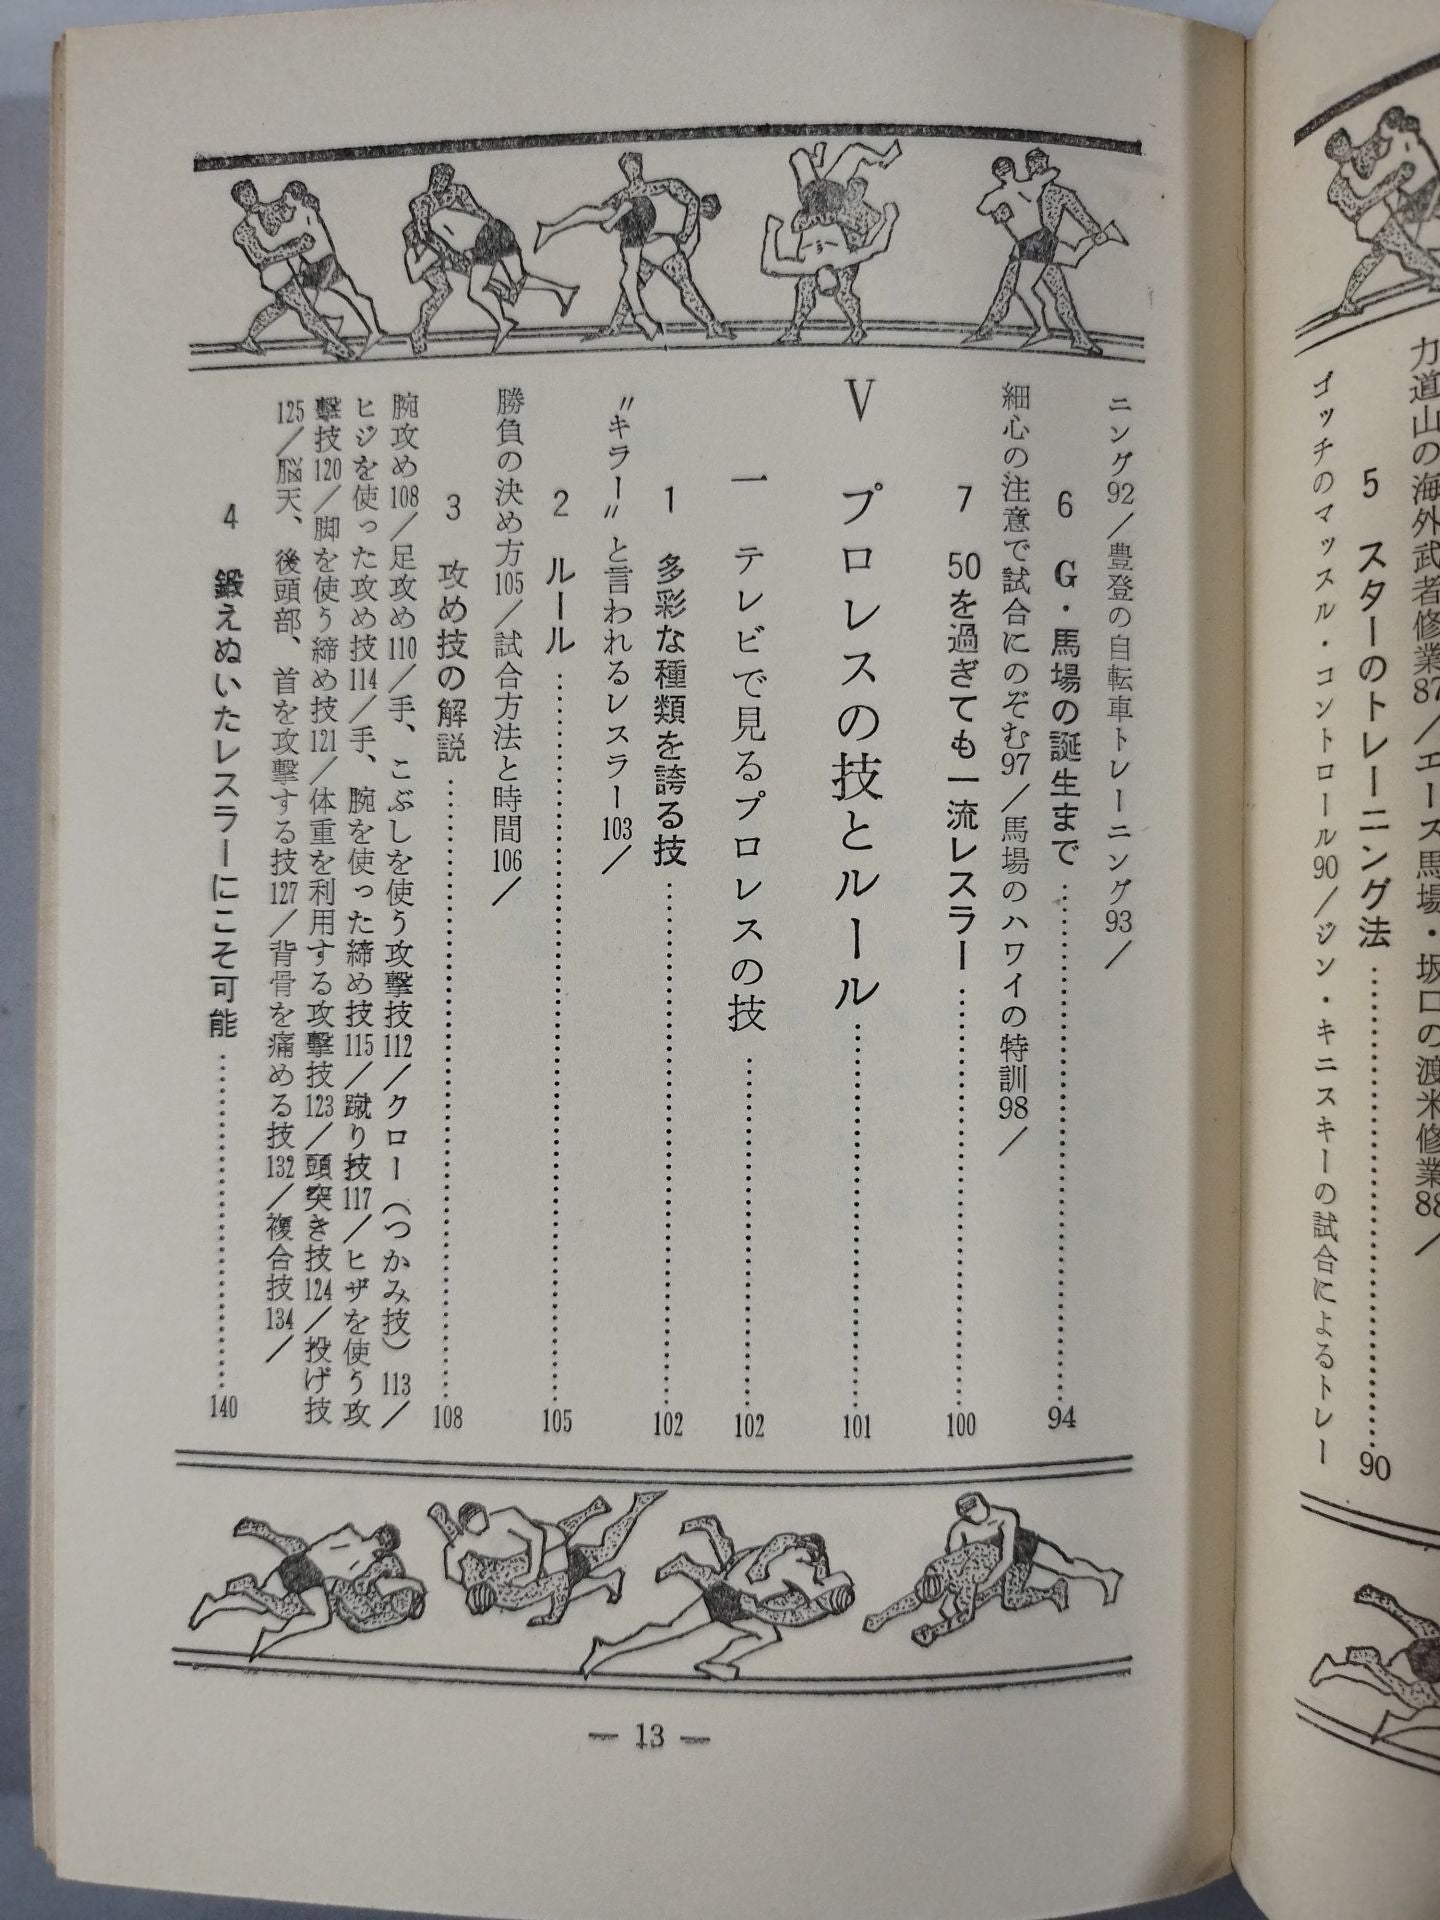 力道山の海外武者修業87／エース馬場・坂口の渡米修業88／
5 スターのトレーニング法……90
ゴッチのマッスル・コントロール90／ジン・キニスキーの試合によるトレー
ニング92／豊登の自転車トレーニング93／
6 G・馬場の誕生まで……94
細心の注意で試合にのぞむ97／馬場のハワイの特訓98／
7 50を過ぎても一流レスラー……100
V プロレスの技とルール……101
一 テレビで見るプロレスの技……102
1 多彩な種類を誇る技……102
〃キラー〃と言われるレスラー103／
2 ルール……105
勝負の決め方105／試合方法と時間106／
3 攻め技の解説……108
腕攻め108／足攻め110／手、こぶしを使う攻撃技112／クロー（つかみ技）113／
ヒジを使った攻め技114／手、腕を使った締め技115／蹴り技117／ヒザを使う攻
撃技120／脚を使う締め技121／体重を利用する攻撃技123／頭突き技124／投げ技
125／脳天、後頭部、首を攻撃する技127／背骨を痛める技132／複合技134／
4 鍛えぬいたレスラーにこそ可能……140
— 13 —